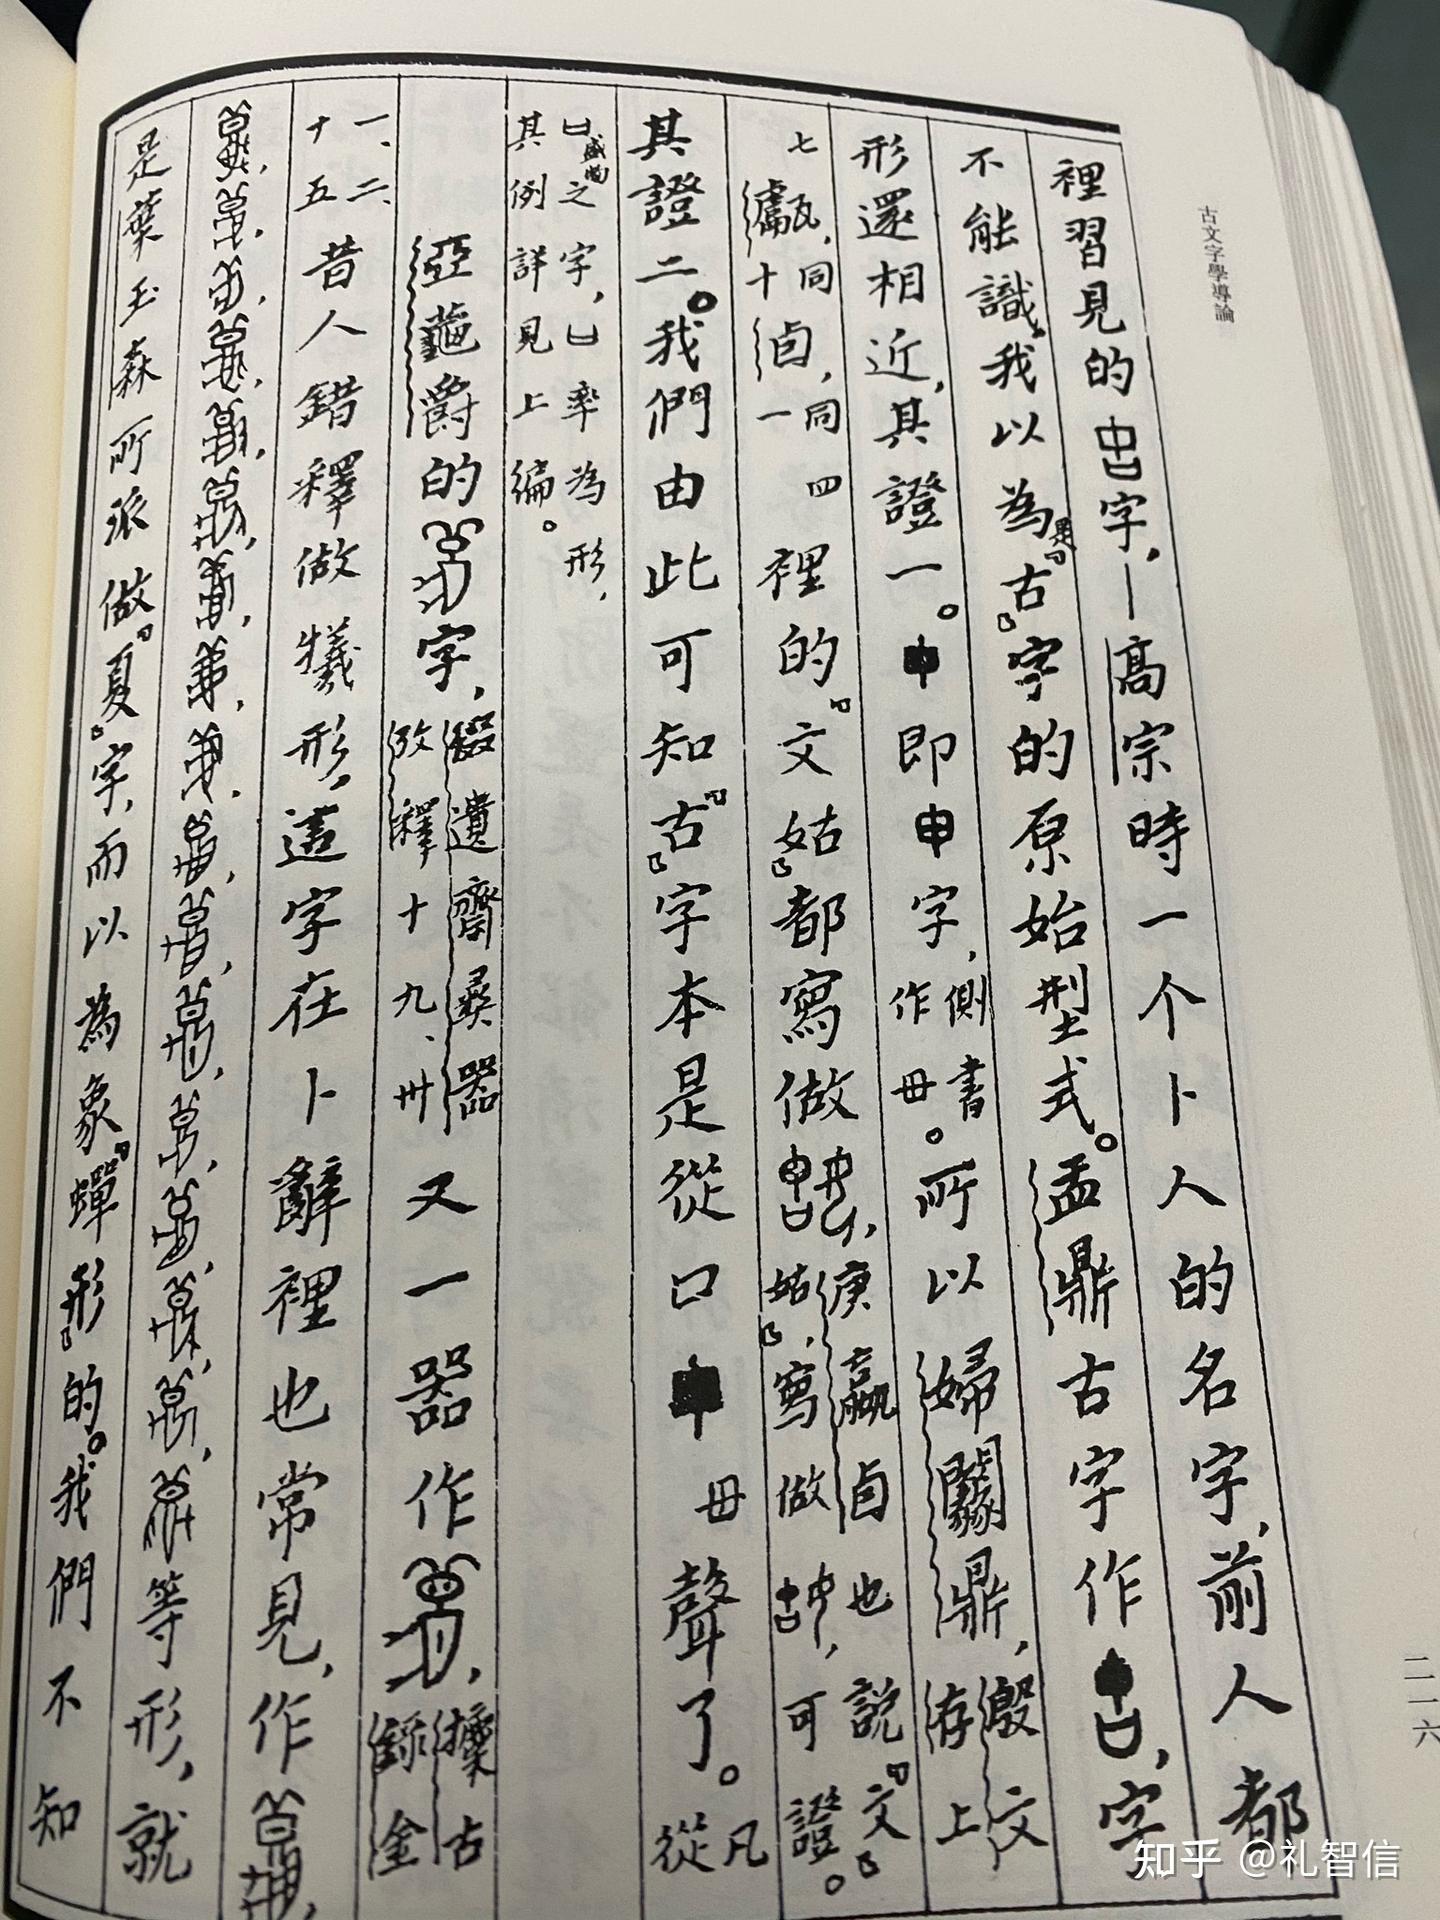 古文字學導論
裡習見的字，—高宗時一个卜人的名字，前人都
不能識。我以為是『古』字的原始型式。盂鼎古字作，字
形還相近，其證一。即申字，側書作毌。所以婦闗鼎，殷文存上
七甗，同十卣，同一四裡的『文姑』都寫做，庚嬴卣也說『文姑』，寫做，可證。
其證二。我們由此可知『古』字本是從口毌聲了。凡從
曰盛物之字，凵率為形，其例詳見上編。
亞爵的字，綴遺齋彝器攷釋十九、卅又一器作，攈古錄金
一、二、十五昔人錯釋做犧形，這字在卜辭裡也常見，作
等形，就
是葉玉森所派做『夏』字，而以為象『蟬形』的。我們不知
二一六
知乎 @礼智信